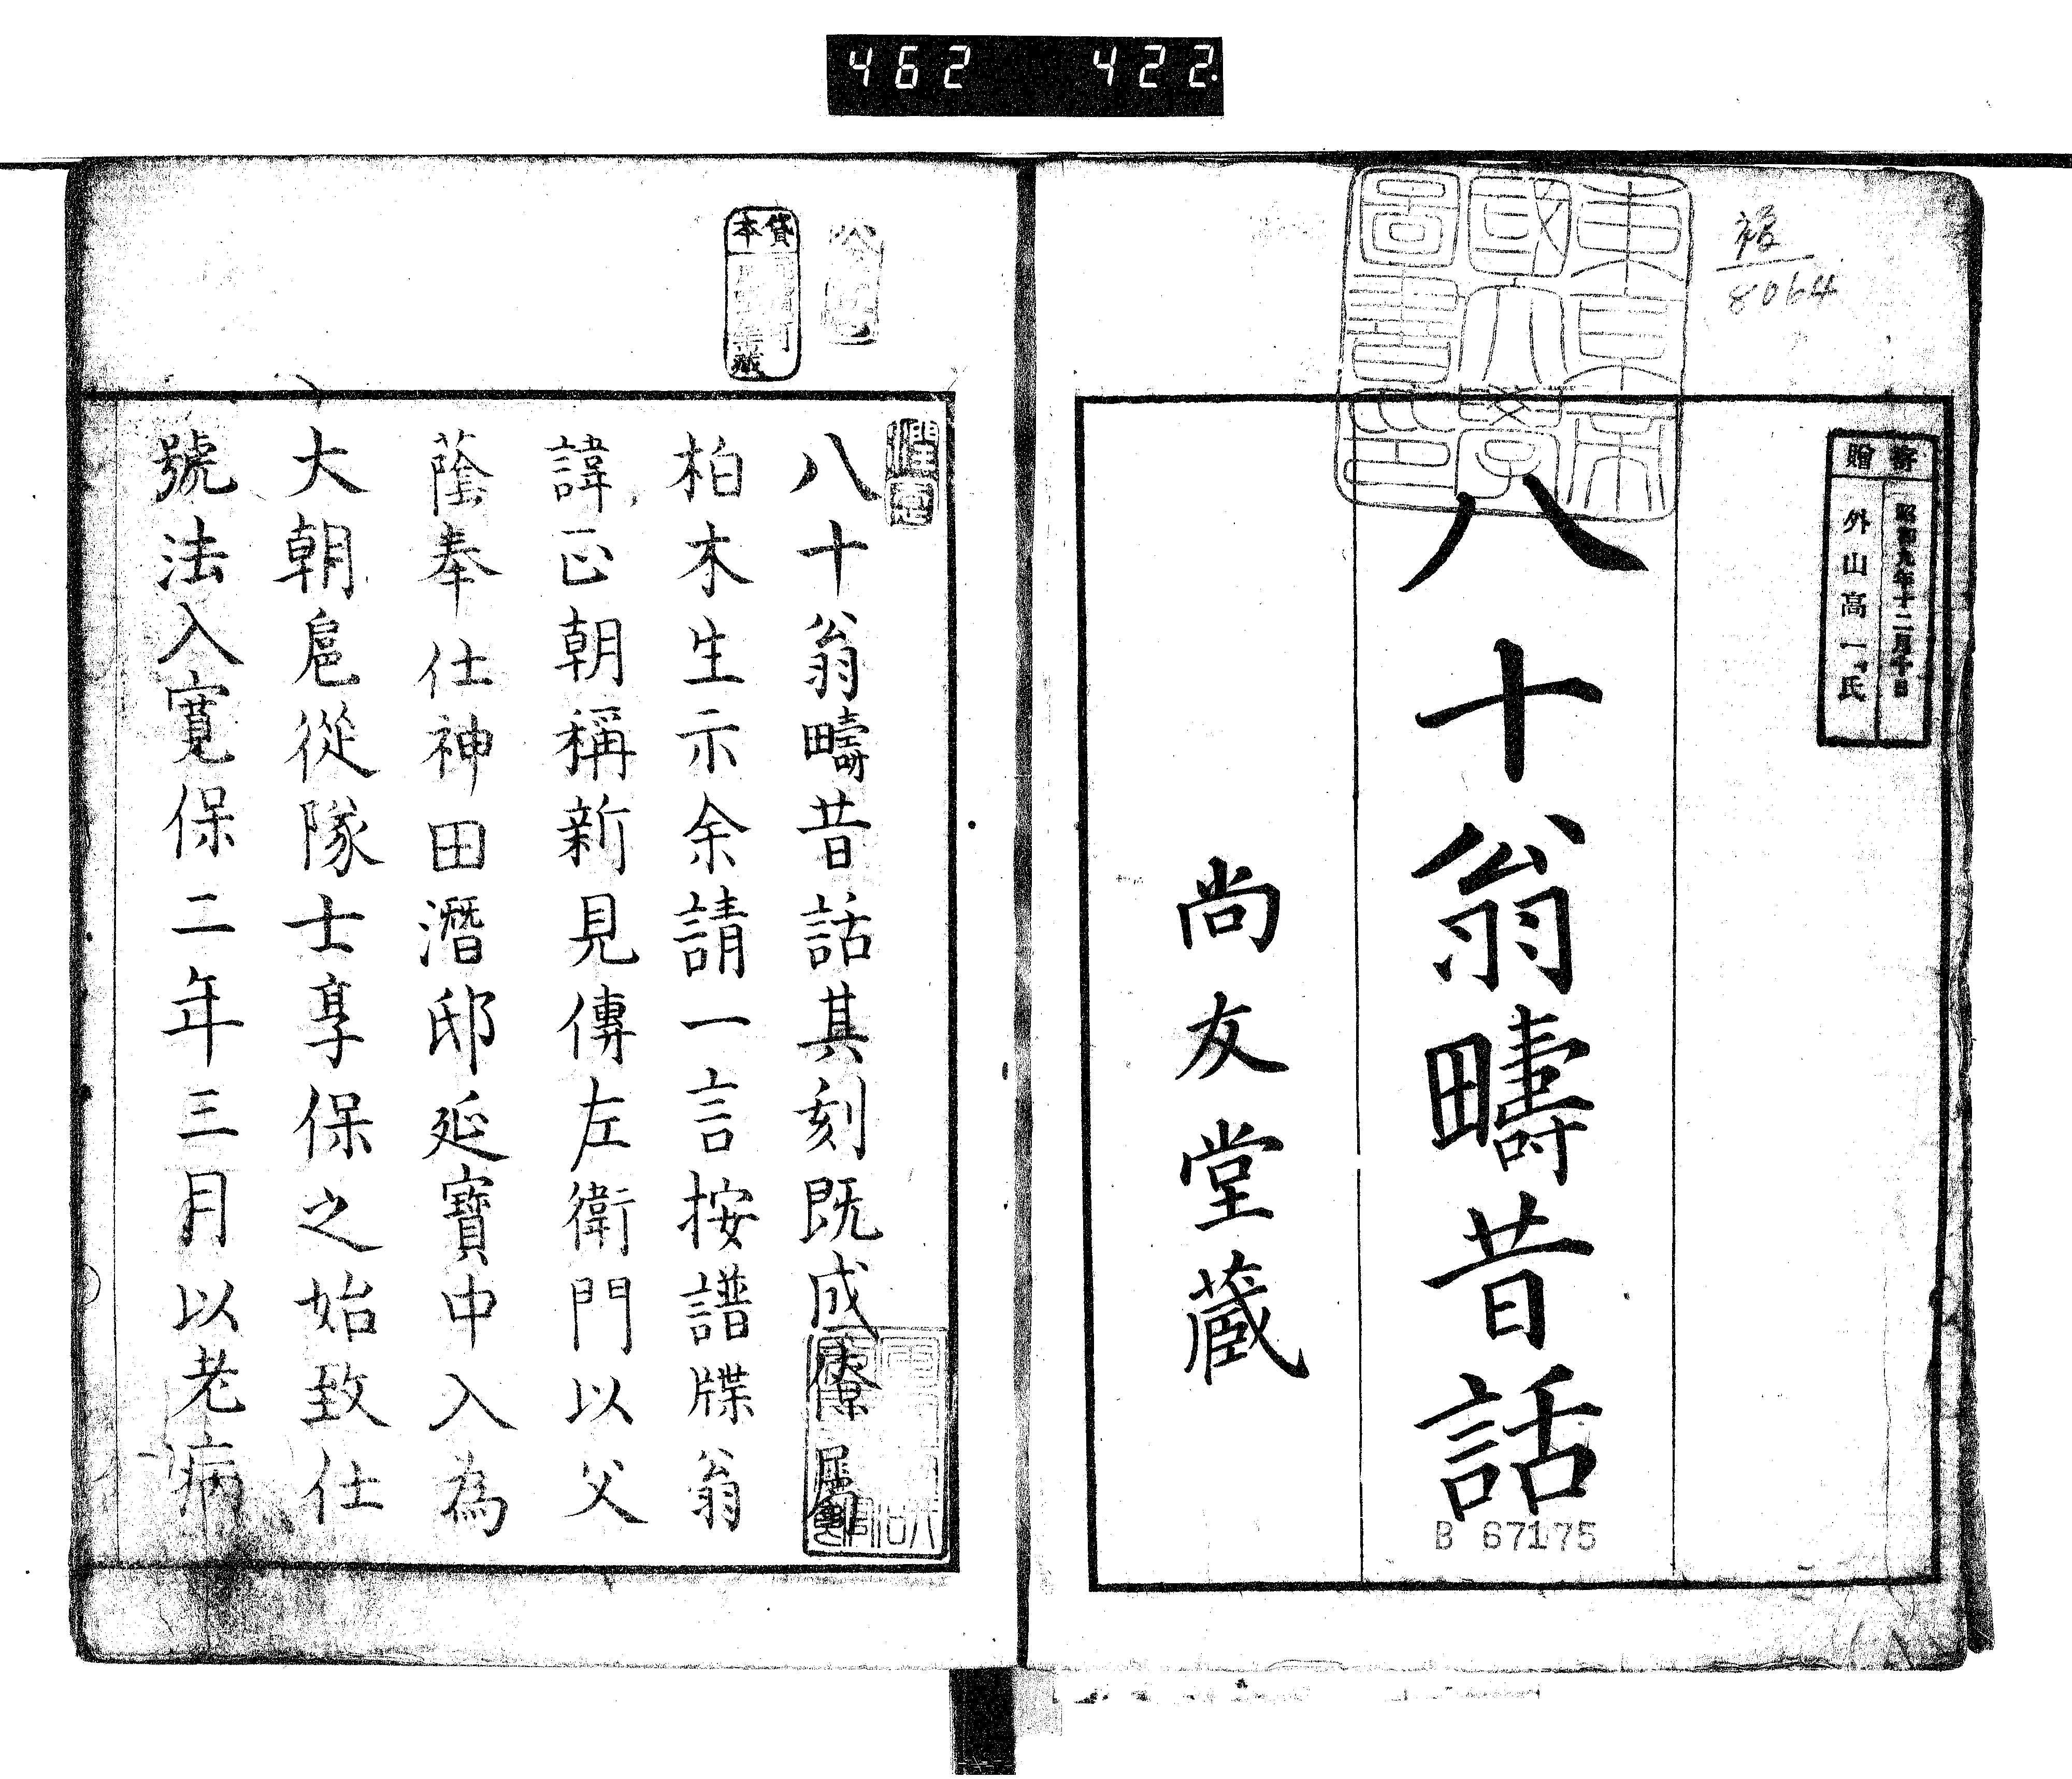 462 422
報
8064
東京帝
國大學
圖書印
寄贈
昭和九年十二月十日
外山高一氏
八十翁疇昔話
尚友堂蔵
B 67175
貸本
八十翁疇昔話其刻既成僚属
柏木生示余請一言按譜牒翁
諱正朝稱新見傳左衛門以父
蔭奉仕神田潛邸延寶中入為
大朝扈從隊士享保之始致仕
號法入寬保二年三月以老病